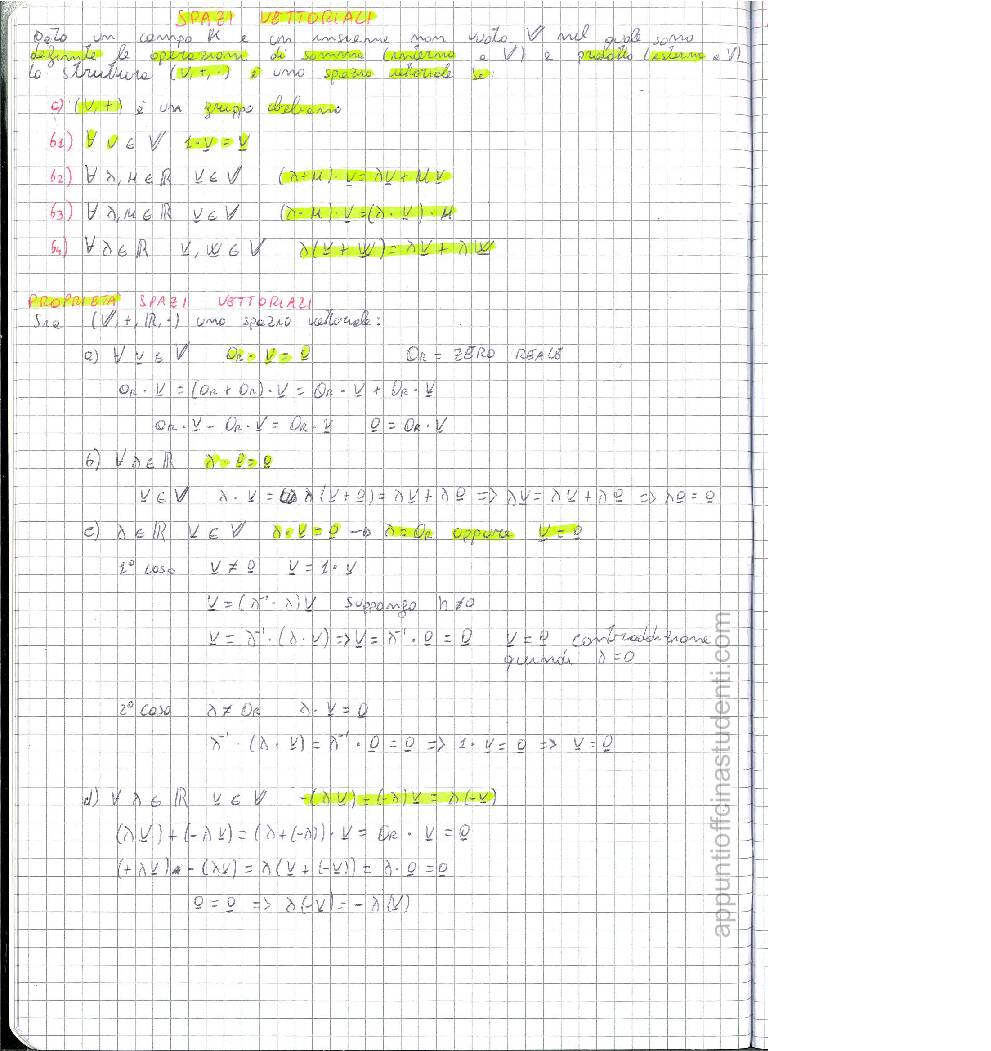 SPAZI VETTORIALI
Dato un campo K e un insieme non vuoto V nel quale sono
definite le operazioni di somma (interna a V) e prodotto (esterno a V)
la struttura (V,+,·) è uno spazio vettoriale se:
a) (V,+) è un gruppo abeliano
b1) ∀ v ∈ V 1·v = v
b2) ∀ λ,μ ∈ R v ∈ V (λ+μ)·v = λv + μv
b3) ∀ λ,μ ∈ R v ∈ V (λ·μ)·v = (λ·v)·μ
b4) ∀ λ ∈ R v, w ∈ V λ(v + w) = λv + λw
PROPRIETÀ SPAZI VETTORIALI
Sia (V,+,R,·) uno spazio vettoriale:
a) ∀ v ∈ V 0R · v = 0 0R = ZERO REALE
0R · v = (0R + 0R)·v = 0R · v + 0R · v
0R · v - 0R · v = 0R · v 0 = 0R · v
b) ∀ λ ∈ R λ·0 = 0
v ∈ V λ · v = λ(v+0) = λv + λ0 => λv = λv + λ0 => λ0 = 0
c) λ ∈ R v ∈ V λ·v = 0 → λ = 0R oppure v = 0
1° caso v ≠ 0 v = 1·v
v = (λ⁻¹·λ)v suppongo λ ≠ 0
v = λ⁻¹·(λ·v) => v = λ⁻¹·0 = 0 v = 0 contraddizione
quindi λ = 0
2° caso λ ≠ 0R λ·v = 0
λ⁻¹·(λ·v) = λ⁻¹·0 = 0 => 1·v = 0 => v = 0
d) ∀ λ ∈ R v ∈ V -(λv) = (-λ)v = λ(-v)
(λv) + (-λv) = (λ+(-λ))·v = 0R · v = 0
(+λv) - (λv) = λ(v + (-v)) = λ·0 = 0
0 = 0 => λ(-v) = -λ(v)
appuntioffcinastudenti.com